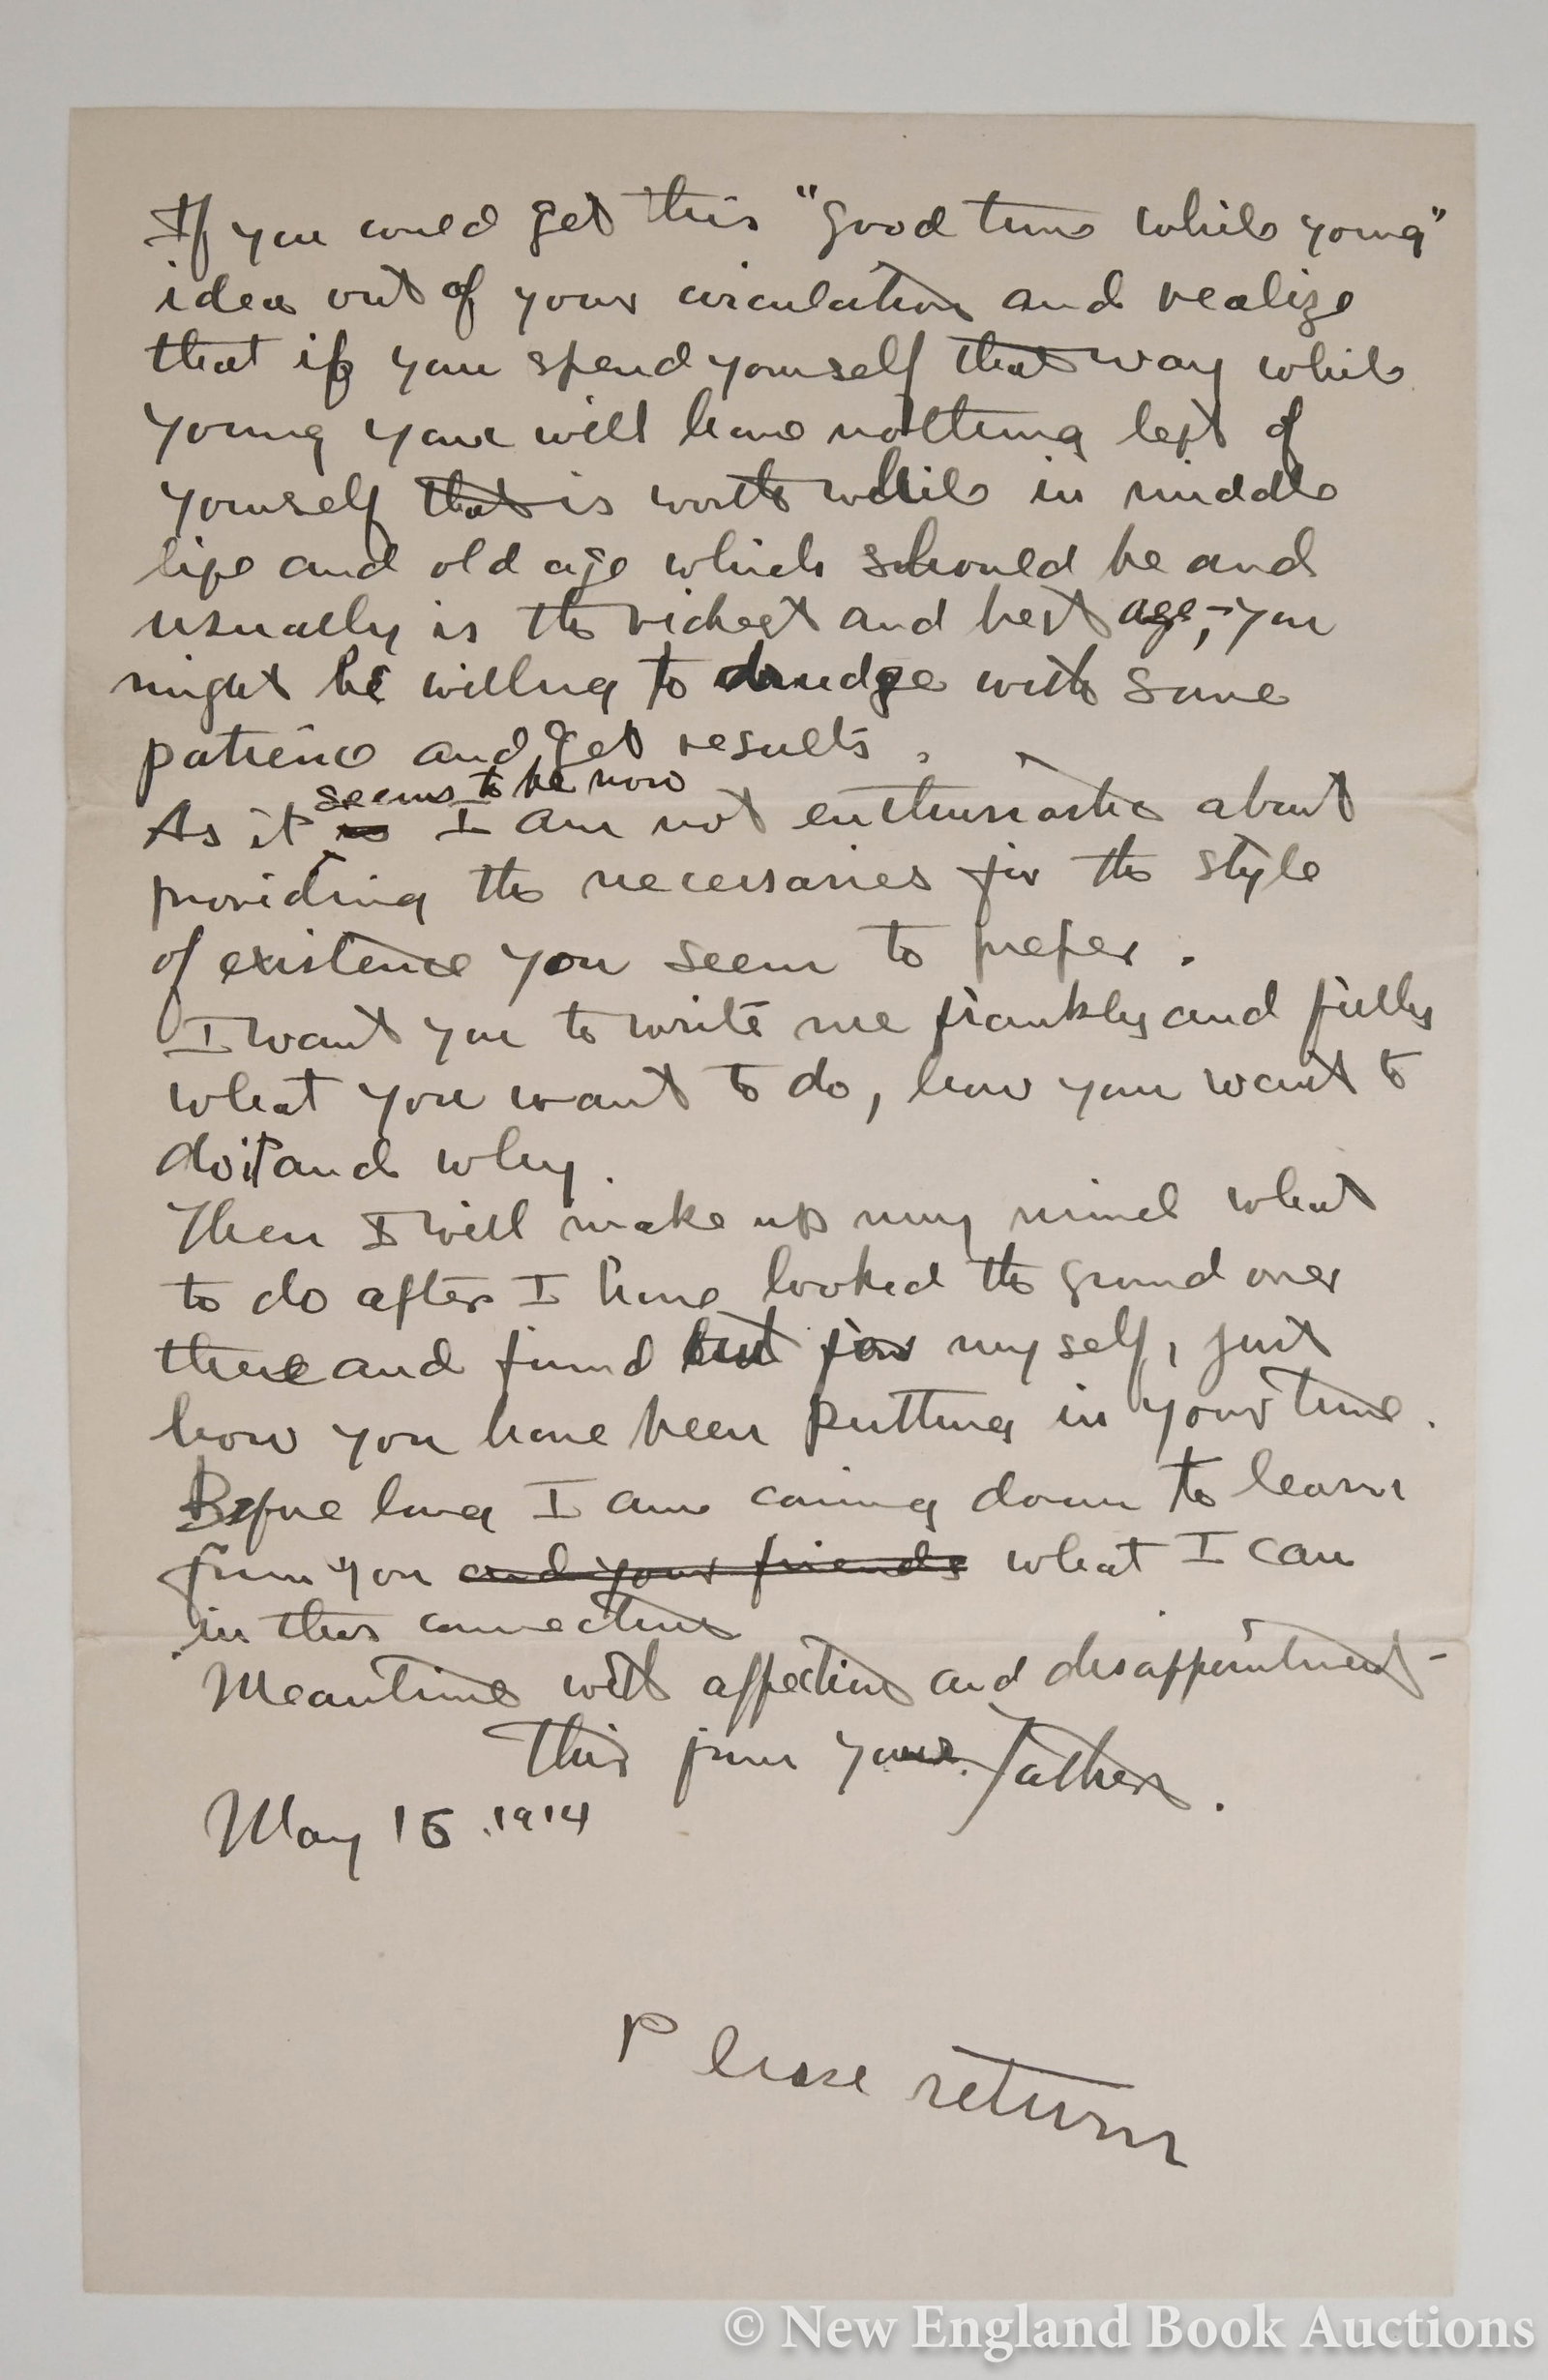 If you could get this "good time while young"
idea out of your circulation and realize
that if you spend yourself that way while
young you will have nothing left of
yourself that is worth while in middle
life and old age which should be and
usually is the richest and best age, - you
might be willing to drudge with some
patience and get results.
seems to be now
As it is I am not enthusiastic about
providing the necessaries for the style
of existence you seem to prefer.
I want you to write me frankly and fully
what you want to do, how you want to
do it and why.
Then I will make up my mind what
to do after I have looked the ground over
there and found out for myself, just
how you have been putting in your time.
Before long I am coming down to learn
from you and your friends what I can
in this connection
Meantime with affection and disappointment -
This from your father.
May 15 .1914
Please return
© New England Book Auctions